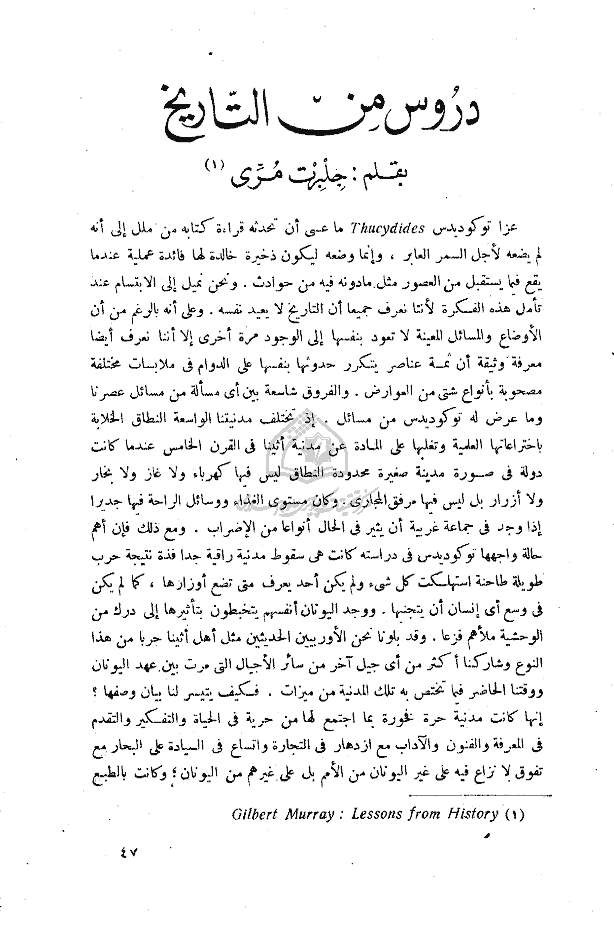 دروس من التاريخ
بقلم : جلبرت مرى (١)
عزا توكوديدس Thucydides ما عسى أن تحدثه قراءة كتابه من ملل إلى أنه
لم يضعه لأجل السمر العابر ، وإنما وضعه ليكون ذخيرة خالدة لها فائدة عملية عندما
يقع فيما يستقبل من العصور مثل مادونه فيه من حوادث . ونحن نميل إلى الابتسام عند
تأمل هذه الفكرة لأننا نعرف جميعا أن التاريخ لا يعيد نفسه . وعلى أنه بالرغم من أن
الأوضاع والمسائل المعينة لا تعود بنفسها إلى الوجود مرة أخرى إلا أننا نعرف أيضا
معرفة وثيقة أن ثمة عناصر يتكرر حدوثها بنفسها على الدوام فى ملابسات مختلفة
مصحوبة بأنواع شتى من العوارض . والفروق شاسعة بين أى مسألة من مسائل عصرنا
وما عرض له توكوديدس من مسائل . إذ تختلف مدنيتنا الواسعة النطاق الخلابة
باختراعاتها العلمية وتغلبها على المادة عن مدنية أثينا فى القرن الخامس عندما كانت
دولة فى صورة مدينة صغيرة محدودة النطاق ليس فيها كهرباء ولا غاز ولا بخار
ولا أزرار بل ليس فيها مرفق المجارى . وكان مستوى الغذاء ووسائل الراحة فيها جديرا
إذا وجد فى جماعة غربية أن يثير فى الحال أنواعا من الإضراب . ومع ذلك فإن أهم
حالة واجهها توكوديدس فى دراسته كانت هى سقوط مدنية راقية جدا فذة نتيجة حرب
طويلة طاحنة استهلكت كل شىء ولم يكن أحد يعرف متى تضع أوزارها ، كما لم يكن
فى وسع أى إنسان أن يتجنبها . ووجد اليونان أنفسهم يتخبطون بتأثيرها إلى درك من
الوحشية ملأهم فزعا . وقد بلونا نحن الأوربيين الحديثين مثل أهل أثينا حربا من هذا
النوع وشاركنا أكثر من أى جيل آخر من سائر الأجيال التى مرت بين عهد اليونان
ووقتنا الحاضر فيما تختص به تلك المدنية من ميزات . فكيف يتيسر لنا بيان وصفها ؟
إنها كانت مدنية حرة فخورة بما اجتمع لها من حرية فى الحياة والتفكير والتقدم
فى المعرفة والفنون والآداب مع ازدهار فى التجارة واتساع فى السيادة على البحار مع
تفوق لا نزاع فيه على غير اليونان من الأمم بل على غيرهم من اليونان ؛ وكانت بالطبع
(١) Gilbert Murray : Lessons from History
٤٧